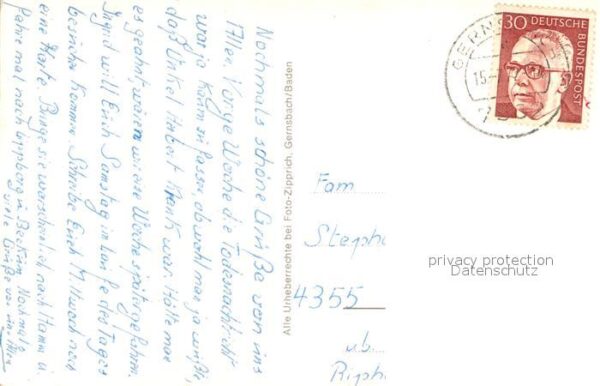 Nochmals schöne Grüße von uns
Allen. Vorige Woche die Todesnachricht
war ja kaum zu fassen, obwohl man ja wußte,
daß Onkel Herbert krank war. Hätte man
es geahnt, wären wir eine Woche später gefahren.
Ingrid will Euch Samstag im Laufe des Tages
besuchen kommen. Schreibe Euch Mittwoch noch
eine Karte. Bringe sie wahrscheinlich nach Hamm u.
fahre mal nach in Beckum. Nochmals
viele Grüße von
Alle Urheberrechte bei Foto-Zipprich, Gernsbach/Baden
GERNS
15.
30
DEUTSCHE
BUNDESPOST
Fam
Steph
4355
üb.
Riph
privacy protection
Datenschutz